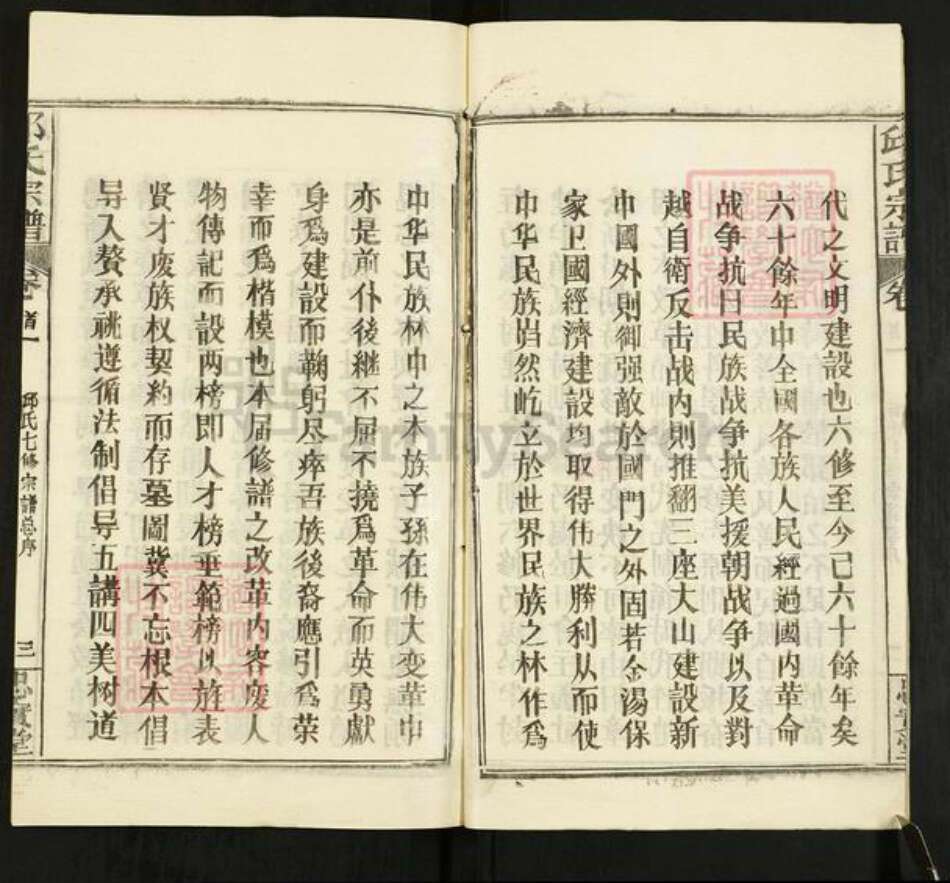 邱氏宗譜
卷
代之文明建設也六修至今已六十餘年矣
六十餘年中全國各族人民經過國内革命
战争抗日民族战争抗美援朝战争以及對
越自衛反击战内則推翻三座大山建設新
中國外則御强敵於國門之外固若金湯保
家卫國經濟建設均取得伟大勝利从而使
中华民族岿然屹立於世界民族之林作爲
中华民族林中之本族子孫在伟大变革中
亦是前仆後継不屈不撓爲革命而英勇獻
身爲建設而鞠躬尽瘁吾族後裔應引爲荣
幸而爲楷模也本届修譜之改革内容废人
物傳記而設两榜即人才榜垂範榜以旌表
贤才废族权契約而存墓圖冀不忘根本倡
导入赘承祧遵循法制倡导五講四美树道
邱氏宗譜
卷首一
邱氏七修宗譜总序
三
忠實堂
FamilySearch